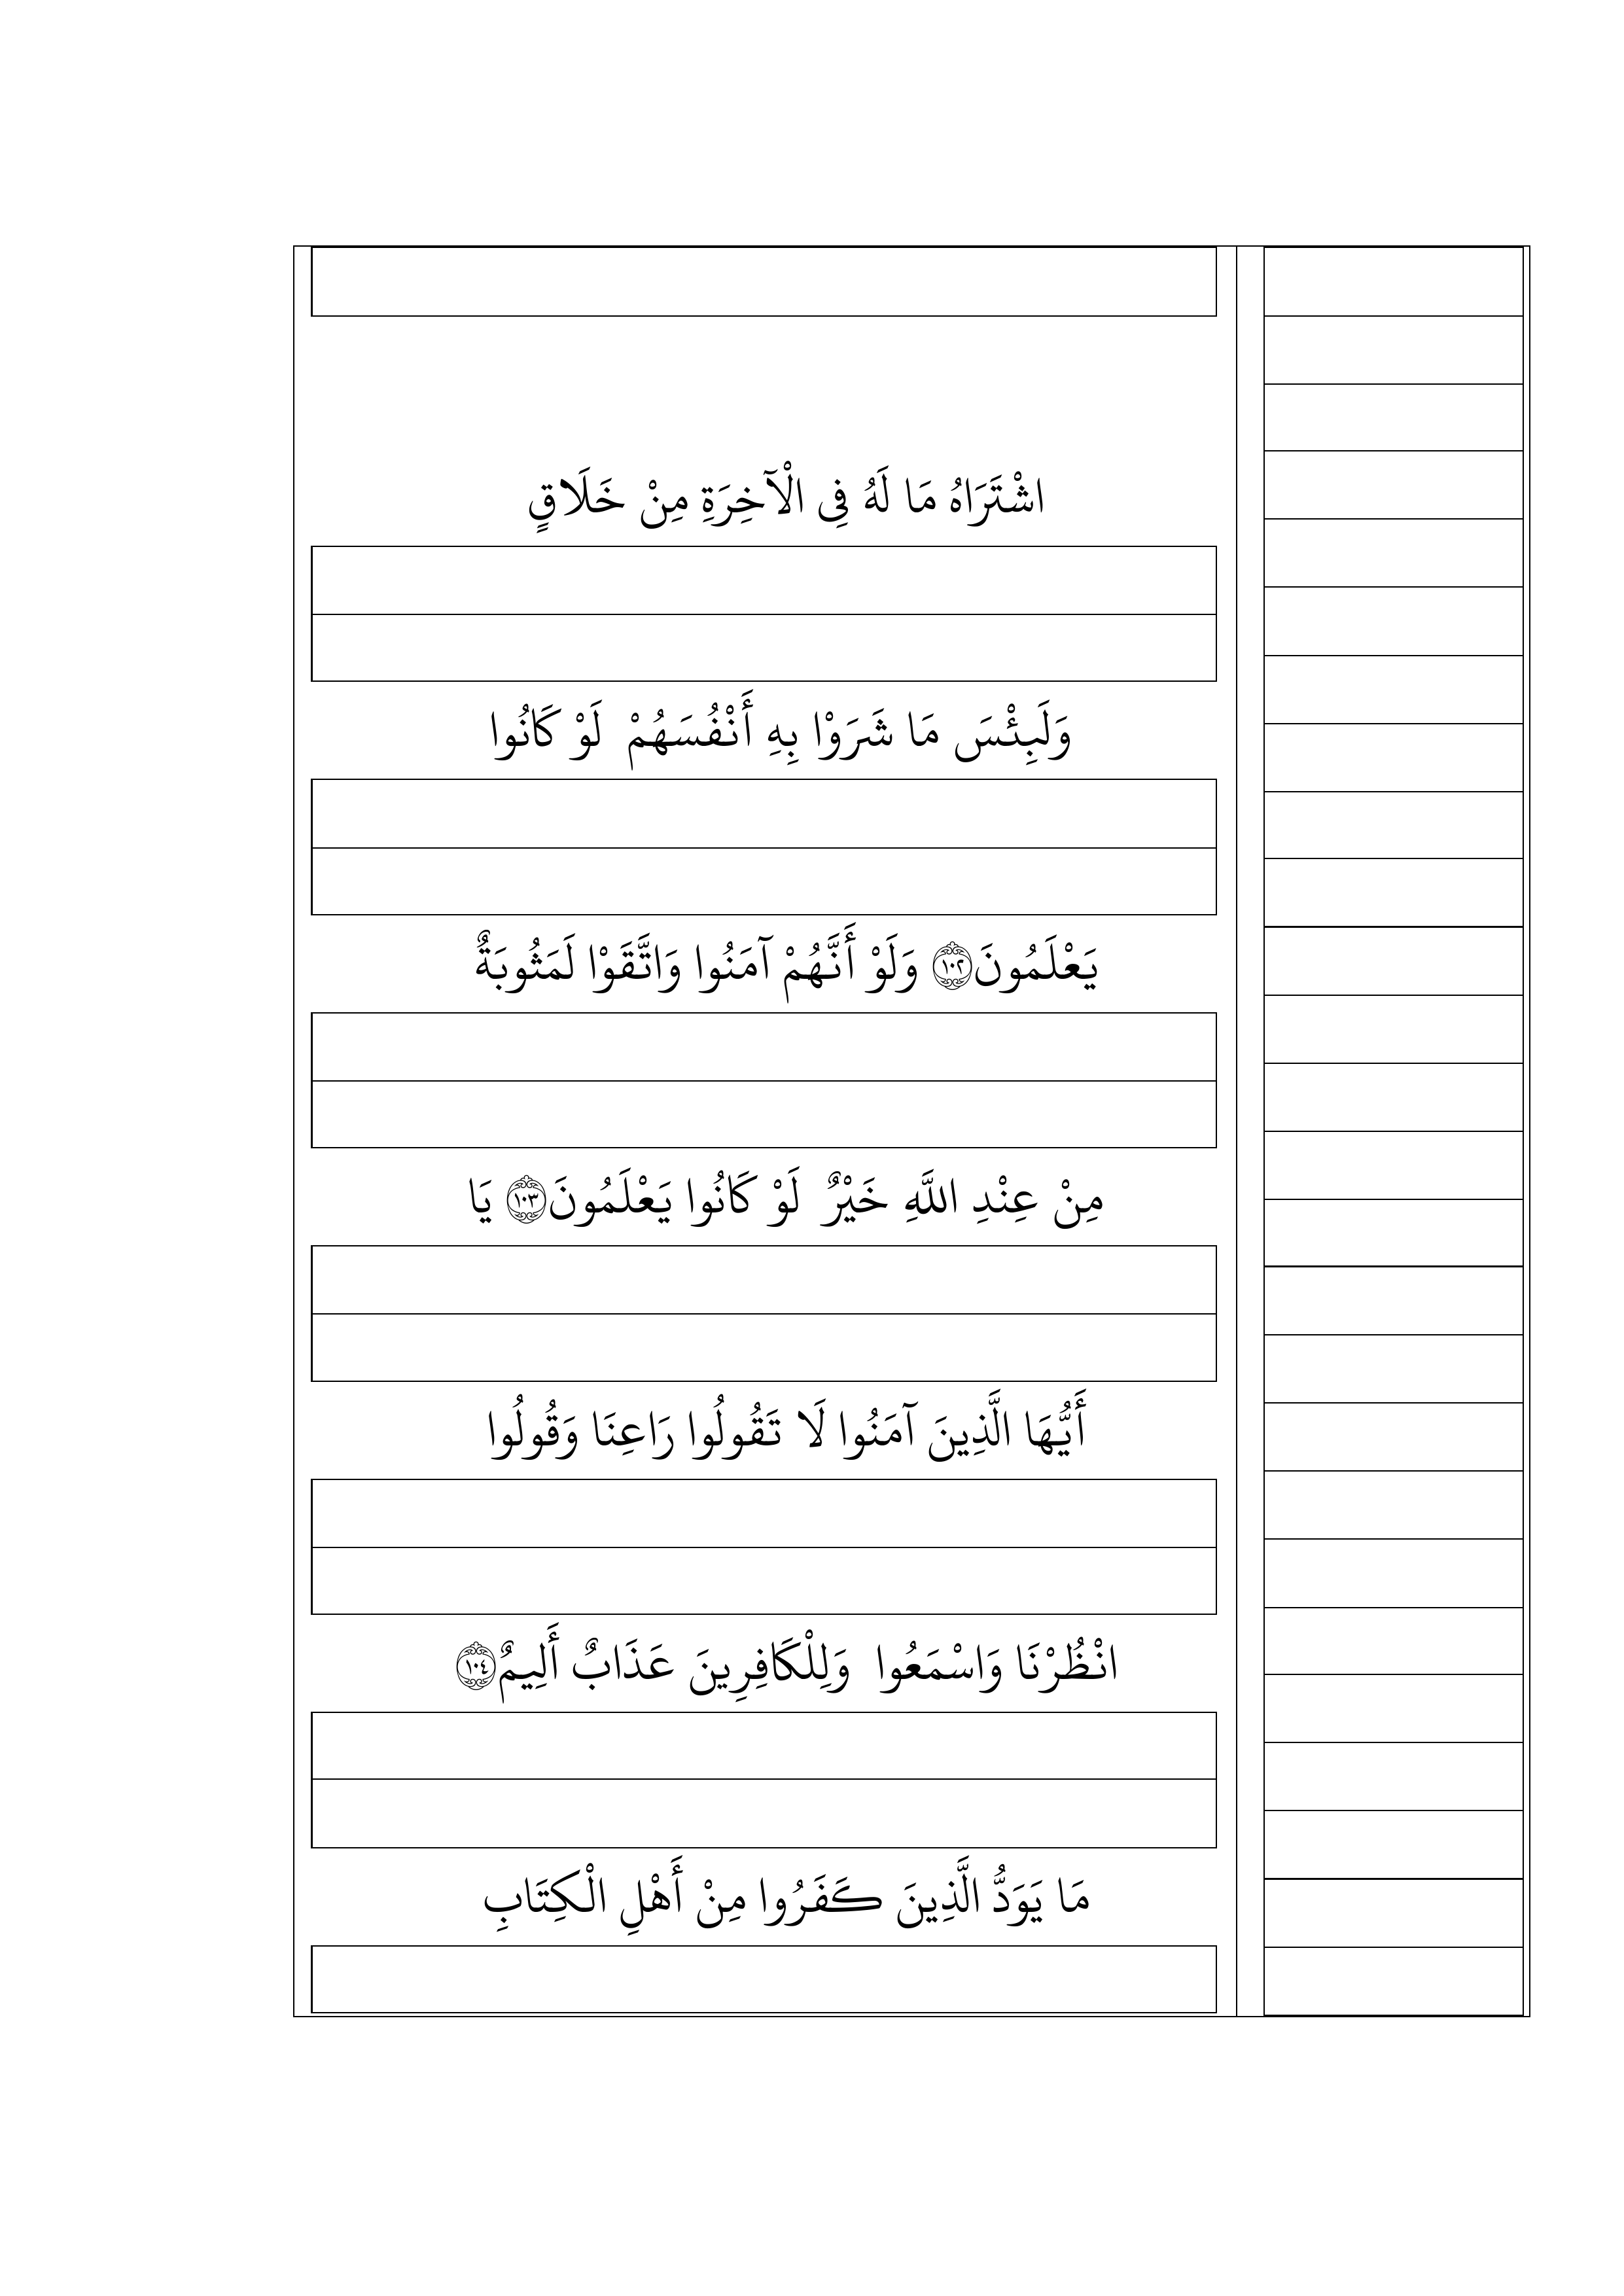 اشْتَرَاهُ مَا لَهُ فِي الْآخِرَةِ مِنْ خَلَاقٍ
وَلَبِئْسَ مَا شَرَوْا بِهِ أَنْفُسَهُمْ لَوْ كَانُوا
يَعْلَمُونَ ﴿١٠٢﴾ وَلَوْ أَنَّهُمْ آمَنُوا وَاتَّقَوْا لَمَثُوبَةٌ
مِنْ عِنْدِ اللَّهِ خَيْرٌ لَوْ كَانُوا يَعْلَمُونَ ﴿١٠٣﴾ يَا
أَيُّهَا الَّذِينَ آمَنُوا لَا تَقُولُوا رَاعِنَا وَقُولُوا
انْظُرْنَا وَاسْمَعُوا وَلِلْكَافِرِينَ عَذَابٌ أَلِيمٌ ﴿١٠٤﴾
مَا يَوَدُّ الَّذِينَ كَفَرُوا مِنْ أَهْلِ الْكِتَابِ